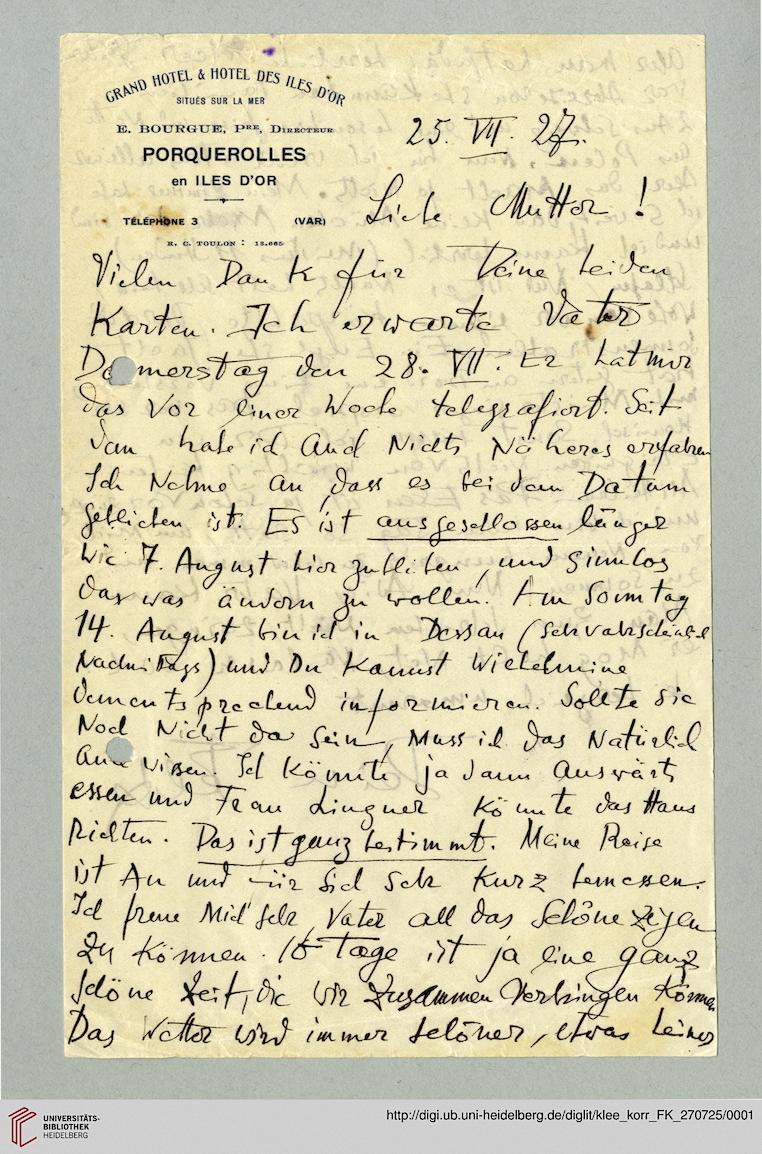 GRAND HOTEL & HOTEL DES ILES D'OR
SITUÉS SUR LA MER
E. BOURGUE, PRE, DIRECTEUR
PORQUEROLLES
en ILES D'OR
TÉLÉPHONE 3 (VAR)
R. C. TOULON : 13.665
25. VII. 27.
Liebe Mutter!
Vielen Dank für Deine beiden
Karten. Ich erwarte Vater
Donnerstag den 28. VII. Er hat mir
das vor einer Woche telegrafiert. Seit
dan habe ich auch nichts Näheres erfahren
Ich nehme an, dass es bei dem Datum
geblieben ist. Es ist ausgeschlossen länger
wie 7. August hier zubleiben, und Sinnlos
dar was ändern zu wollen. Am Sonntag
14. August bin ich in Dessau (Schwahrscheinlich
Nachmittags) und Du kannst Wiehelmine
dementsprechend informieren. Sollte sie
noch nicht da sein, muss ich das natürlich
auch wissen. Ich könnte ja dann auswärts
essen und Frau Lingner könnte das Haus
richten. Das ist ganz bestimmt. Meine Reise
ist an und für sich sehr kurz bemessen.
Ich freue mich sehr, Vater all das Schöne zeigen
zu können. 10 Tage ist ja eine ganz
schöne Zeit, die wir zusammen verbringen können
Das Wetter wird immer schöner, etwas